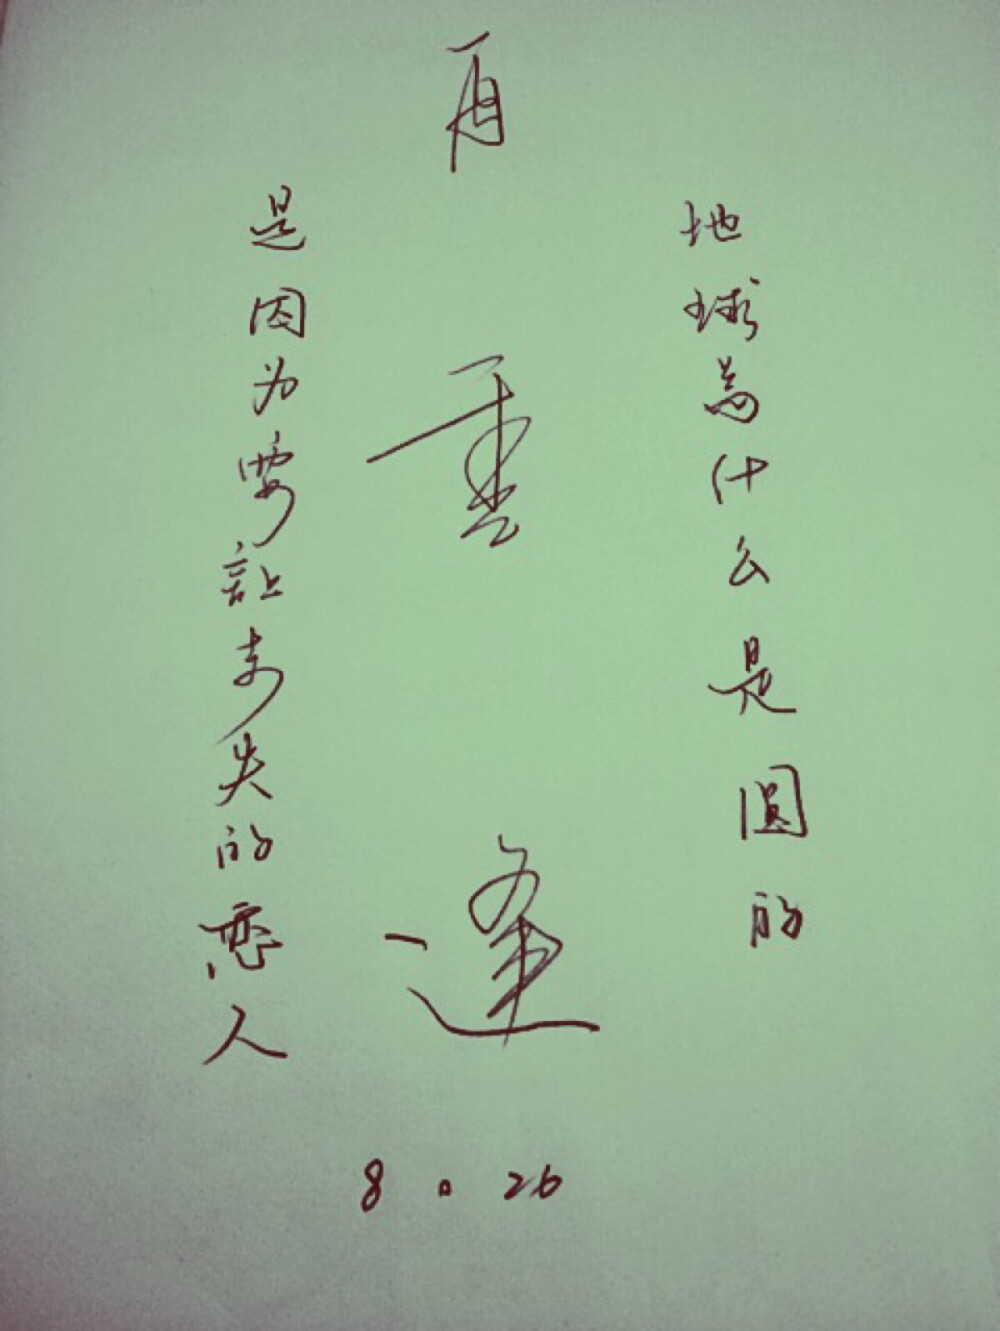 地球為什么是圆的
再重逢
是因为要让走失的恋人
8.26